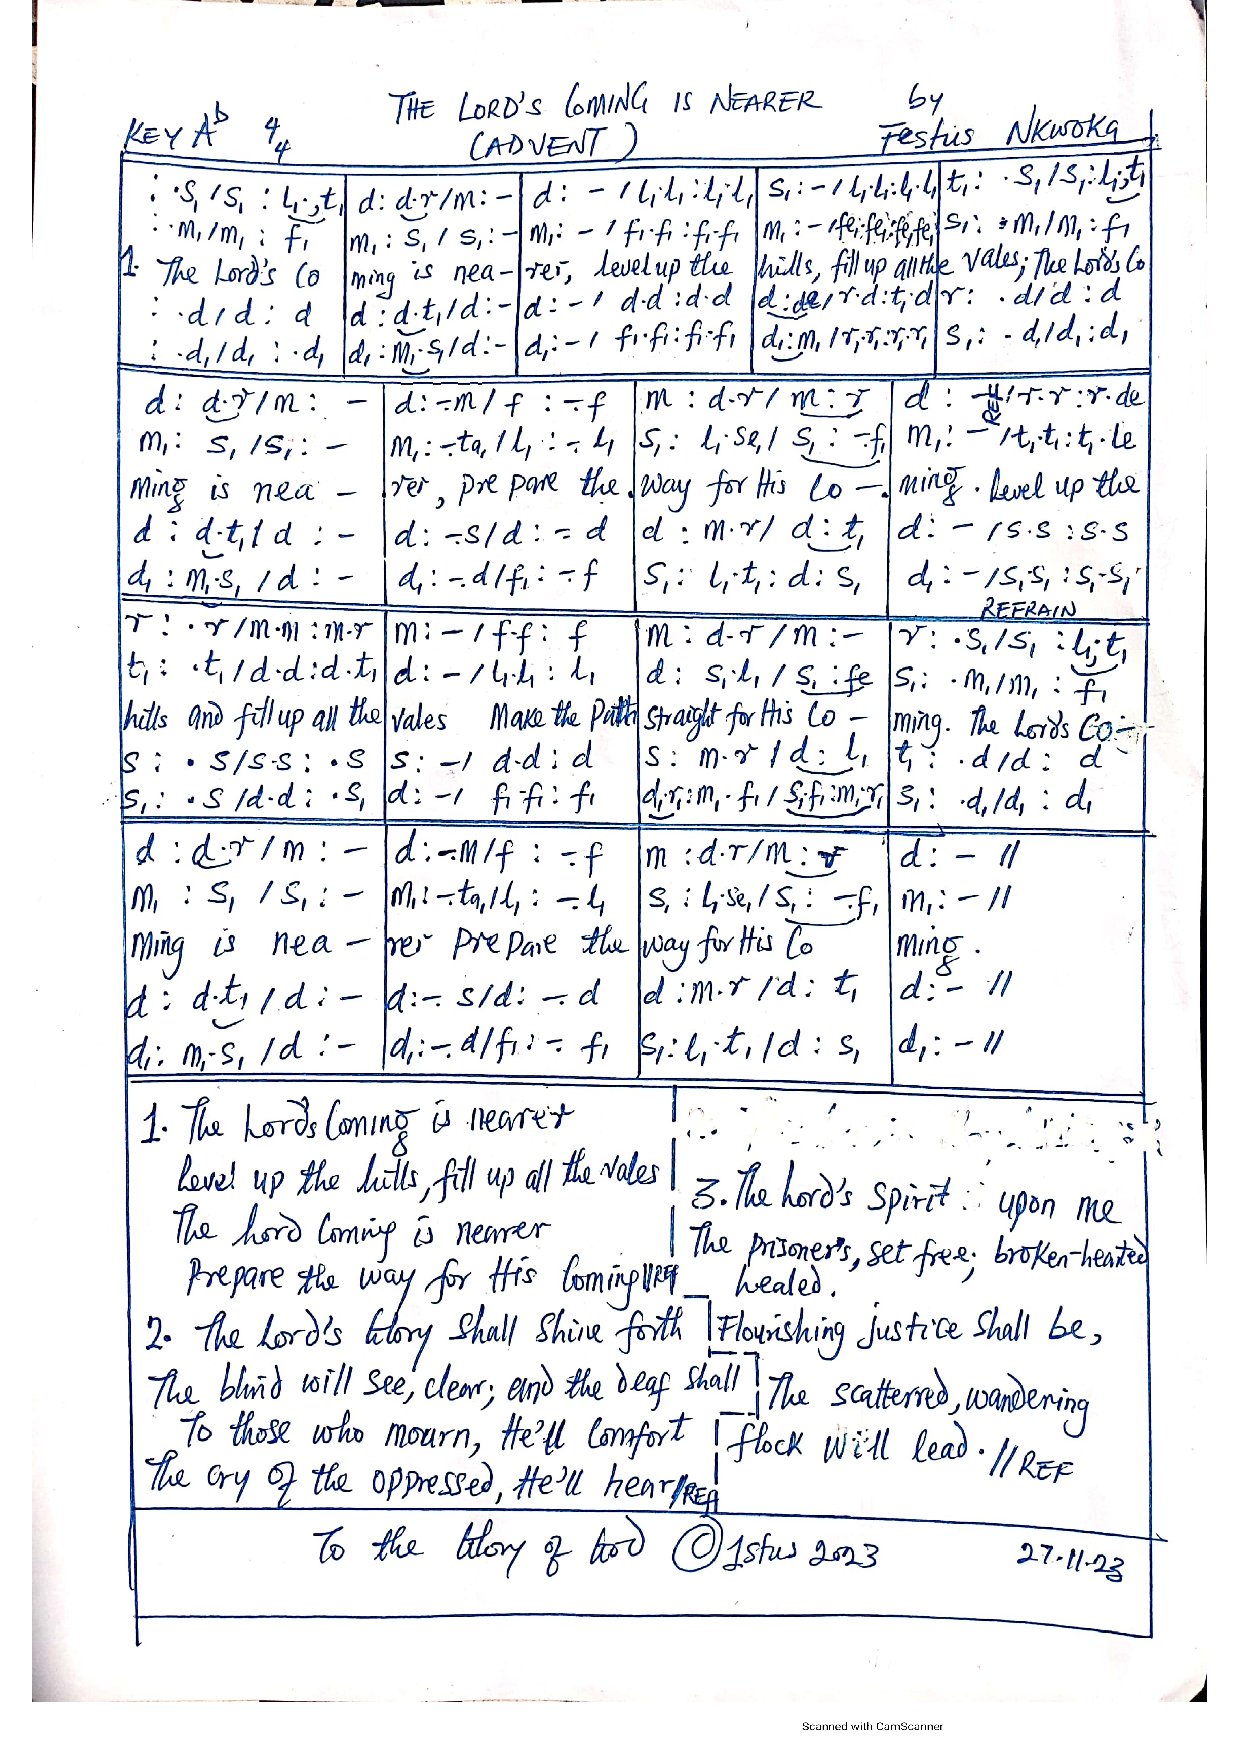 THE LORD'S COMING IS NEARER by
KEY Ab 4/4 (ADVENT) Festus Nkwoka
: ·s₁/s₁ : l₁·,t₁ | d : d·r/m : - | d : - / l₁·l₁ : l₁·l₁ | s₁ : - / l₁·l₁ : l₁·l₁ | t₁ : ·s₁/s₁ : l₁·,t₁
: ·m₁/m₁ : f₁ | m₁ : s₁ / s₁ : - | m₁ : - / f₁·f₁ : f₁·f₁ | m₁ : - / fe₁·fe₁ : fe₁·fe₁ | s₁ : ·m₁/m₁ : f₁
1. The Lord's Co | ming is nea - | rer, level up the | hills, fill up all the | vales; The Lord's Co
: ·d/d : d | d : d·t₁/d : - | d : - / d·d : d·d | d : de/r·d : t₁·d | r : ·d/d : d
: ·d₁/d₁ : ·d₁ | d₁ : m₁·s₁/d : - | d₁ : - / f₁·f₁ : f₁·f₁ | d₁ : m₁/r₁·r₁ : r₁·r₁ | s₁ : - d₁/d₁ : d₁
d : d·r/m : - | d : -·m/f : -·f | m : d·r/m : r | d : - REF / r·r : r·de
m₁ : s₁/s₁ : - | m₁ : -·ta₁/l₁ : -·l₁ | s₁ : l₁·se₁/s₁ : -·f₁ | m₁ : - /t₁·t₁ : t₁·le
ming is nea - | rer, prepare the | way for His Co - | ming. Level up the
d : d·t₁/d : - | d : -·s/d : -·d | d : m·r/d : t₁ | d : - /s·s : s·s
d₁ : m₁·s₁/d : - | d₁ : -·d/f₁ : -·f | s₁ : l₁·t₁ : d : s₁ | d₁ : -/s₁·s₁ : s₁·s₁
REFRAIN
r : ·r/m·m : m·r | m : - / f·f : f | m : d·r/m : - | r : ·s₁/s₁ : l₁·,t₁
t₁ : ·t₁/d·d : d·t₁ | d : - / l₁·l₁ : l₁ | d : s₁·l₁/s₁ : fe | s₁ : ·m₁/m₁ : f₁
hills and fill up all the | vales Make the Path | straight for His Co - | ming. The Lord's Co-
s : ·s/s·s : ·s | s : - / d·d : d | s : m·r/d : l₁ | t₁ : ·d/d : d
s₁ : ·s/d·d : ·s₁ | d : - / f₁·f₁ : f₁ | d₁·r₁ : m₁·f₁/s₁·f₁ : m₁·r₁ | s₁ : ·d₁/d₁ : d₁
d : d·r/m : - | d : -·m/f : -·f | m : d·r/m : r | d : - //
m₁ : s₁/s₁ : - | m₁ : -·ta₁/l₁ : -·l₁ | s₁ : l₁·se₁/s₁ : -·f₁ | m₁ : - //
ming is nea - | rer prepare the | way for His Co | ming.
d : d·t₁/d : - | d : -·s/d : -·d | d : m·r/d : t₁ | d : - //
d₁ : m₁·s₁/d : - | d₁ : -·d/f₁ : -·f₁ | s₁ : l₁·t₁/d : s₁ | d₁ : - //
1. The Lord's Coming is nearer
Level up the hills, fill up all the vales
The Lord Coming is nearer
Prepare the way for His Coming//REF
2. The Lord's Glory Shall Shine forth
The blind will see, clear; and the deaf shall
To those who mourn, He'll Comfort
The cry of the oppressed, He'll hear//REF
3. The Lord's Spirit : upon me
The prisoner's, set free; broken-hearted
healed.
Flourishing justice shall be,
The scatterred, wandering
flock will lead. //REF
To the Glory of God © 1stus 2023 27-11-23
Scanned with CamScanner